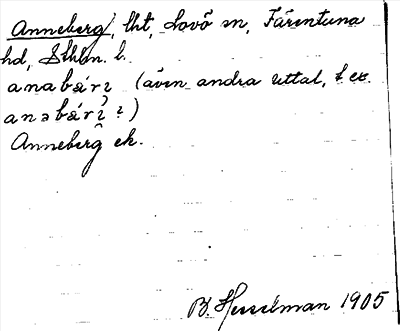 Anneberg, lht, Lovö sn, Färentuna
hd, Sthlm. l.
anabári (även andra uttal, t ex.
anəbári ?)
Anneberg ek.
B. Hesselman 1905